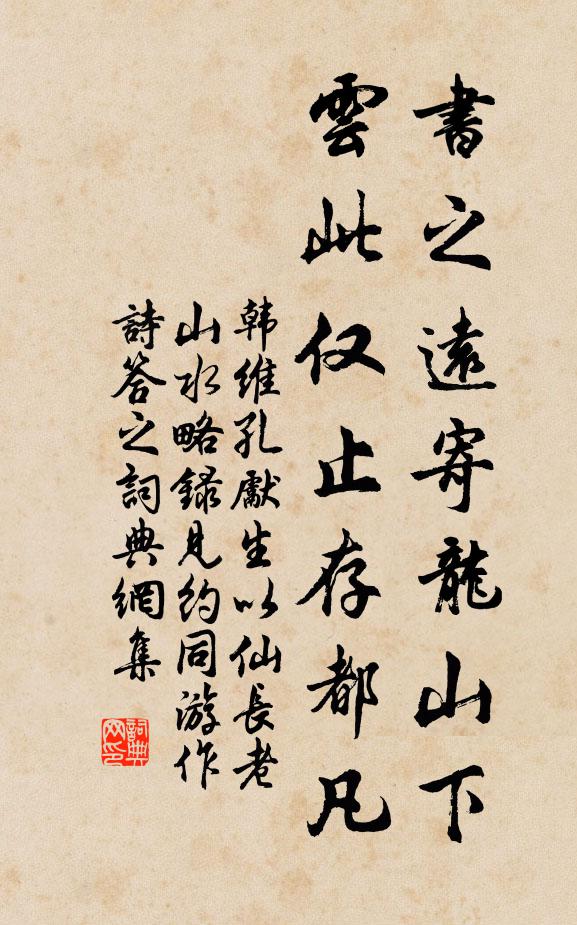 書之遠寄龍山下
雲此仅止存都凡
韩維孔獻生以仙長老
山水略録見約同游作
詩答之詞典網集
詞典网印